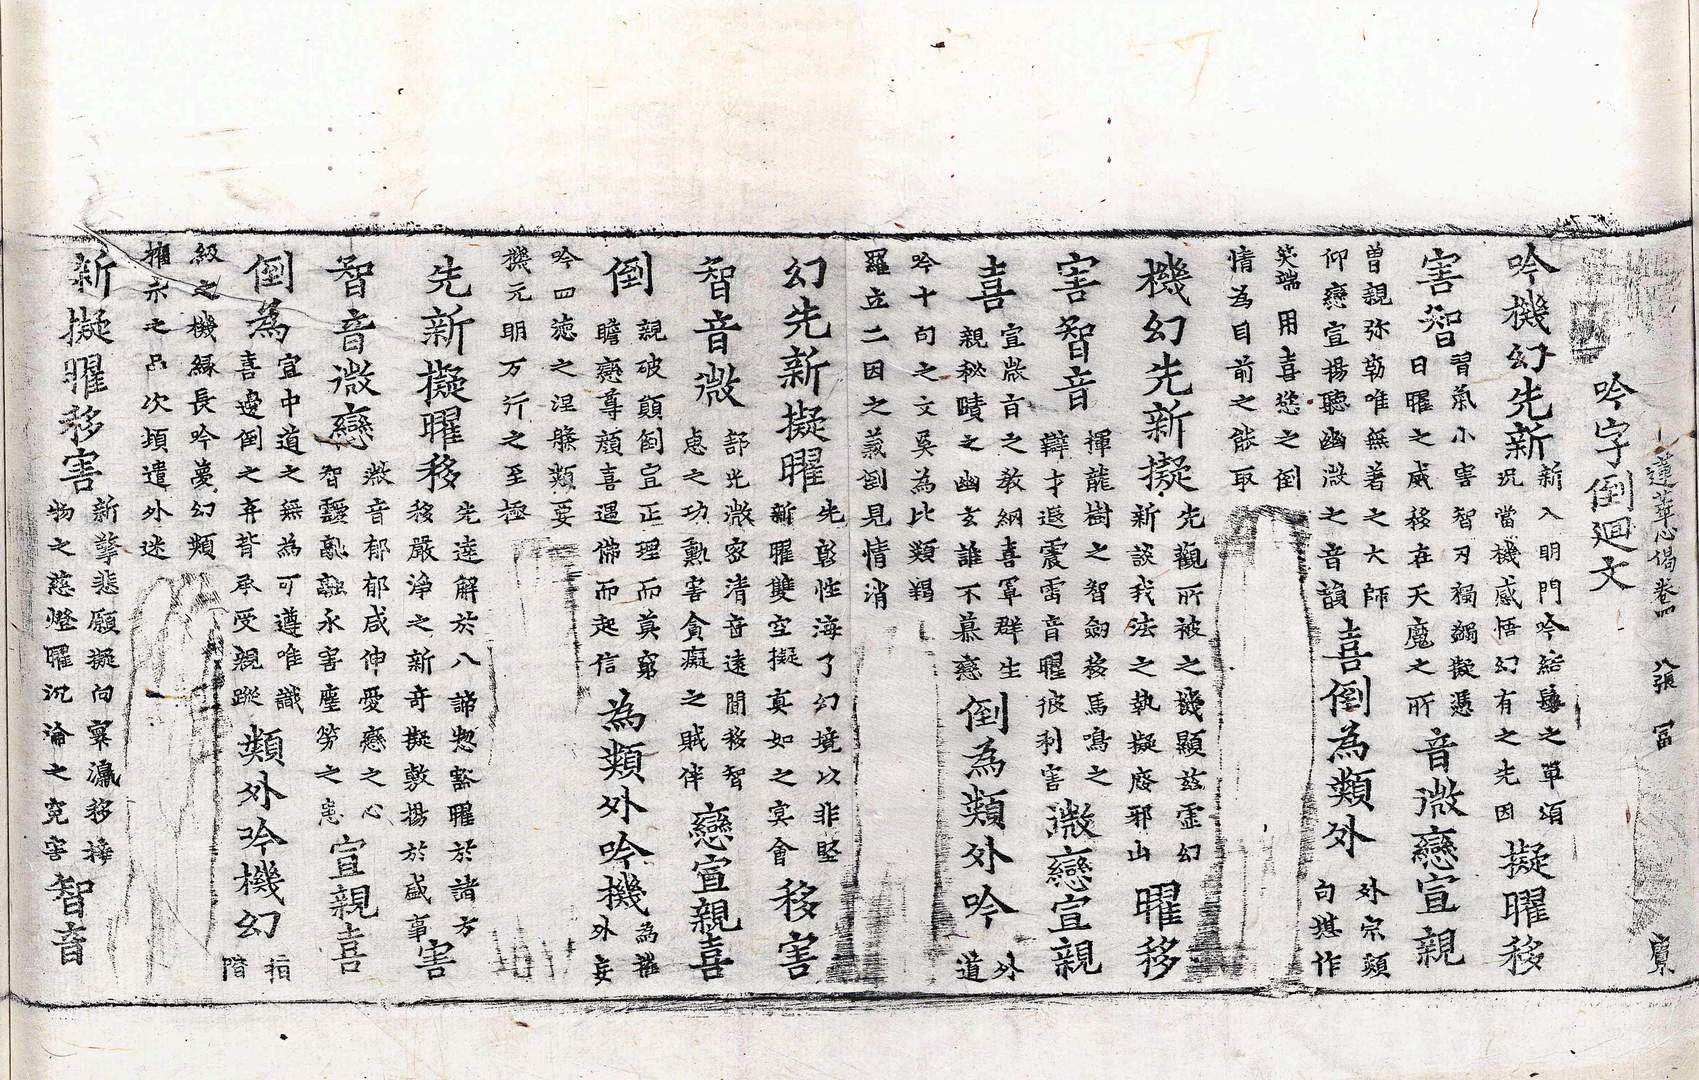 蓮華心偈卷四　八張　冨　寶
吟字倒迴文
吟機幻先新
新入明門吟結髮之單頌
況當機感悟幻有之先因
擬曜移
害智
習氣小害智刃獨蠲擬憑
日曜之威移在天魔之所
音微戀宣親
曽親弥勒唯無著之大師
仰戀宣揚聽幽微之音韻
喜倒為類外
外宗頭
向堪作
笑端用喜慾之倒
情為目前之能取
機幻先新擬
先觀所被之機顯兹霊幻
新談我法之執擬廢邪山
曜移
害智音
揮龍樹之智劒移馬鳴之
辯才遐震雷音曜彼利害
微戀宣親
喜
宣微言之教網喜羣生
親秘賾之幽玄誰不慕戀
倒為類外吟
外
道
吟十句之文吳為比類羯
羅立二因之義倒見情消
幻先新擬曜
先彰性海了幻境以非堅
新曜雙空擬真如之冥會
移害
智音微
部光微密清音遠聞移智
慮之功勲害貪癡之賊伴
戀宣親喜
倒
親破顛倒宣正理而莫窮
瞻戀尊顔喜遇佛而起信
為類外吟機
為
外妄
吟四徳之涅槃類要
機元明万行之至極
先新擬曜移
先達解於八諦惣豁曜於諸方
移嚴淨之新奇擬敷揚於盛事
害
智音微戀
微音郁郁咸伸愛戀之心
智靈融融永害塵勞之患
宣親喜
倒為
宣中道之無為可遵唯識
喜邊倒之弃背承受親蹤
類外吟機幻
階
級之機緣長吟夢幻類
權示之品次頓遣外迷
新擬曜移害
新擎悲願擬向稟瀛移接
物之慈燈曜沉淪之究害
智音